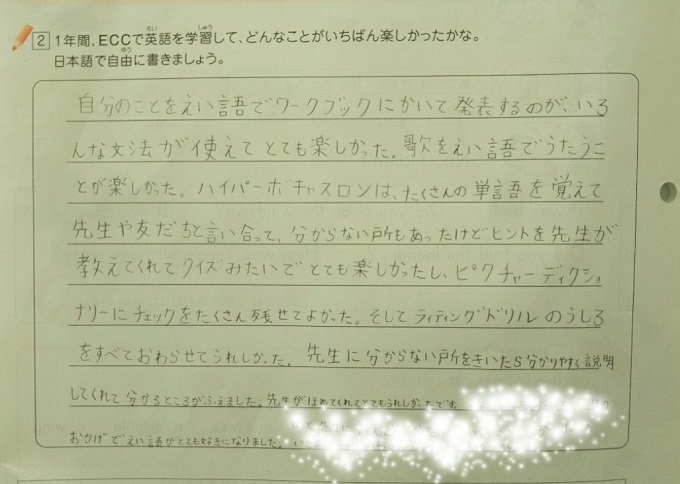 2 1年間、ECCで英語を学習して、どんなことがいちばん楽しかったかな。
日本語で自由に書きましょう。
自分のことをえい語でワークブックにかいて発表するのが、いろ
んな文法が使えてとても楽しかった。歌をえい語でうたうこ
とが楽しかった。ハイパーボキャスロンは、たくさんの単語を覚えて
先生や友だちと言い合って、分からない所もあったけどヒントを先生が
教えてくれてクイズみたいでとても楽しかったし、ピクチャーディクショ
ナリーにチェックをたくさん残せてよかった。そしてライティングドリルのうしろ
をすべておわらせてうれしかった。先生に分からない所をきいたら分かりやすく説明
してくれて分かるところがふえました。先生がほめてくれてとてもうれしかったです。
おかげでえい語がとても好きになりました。